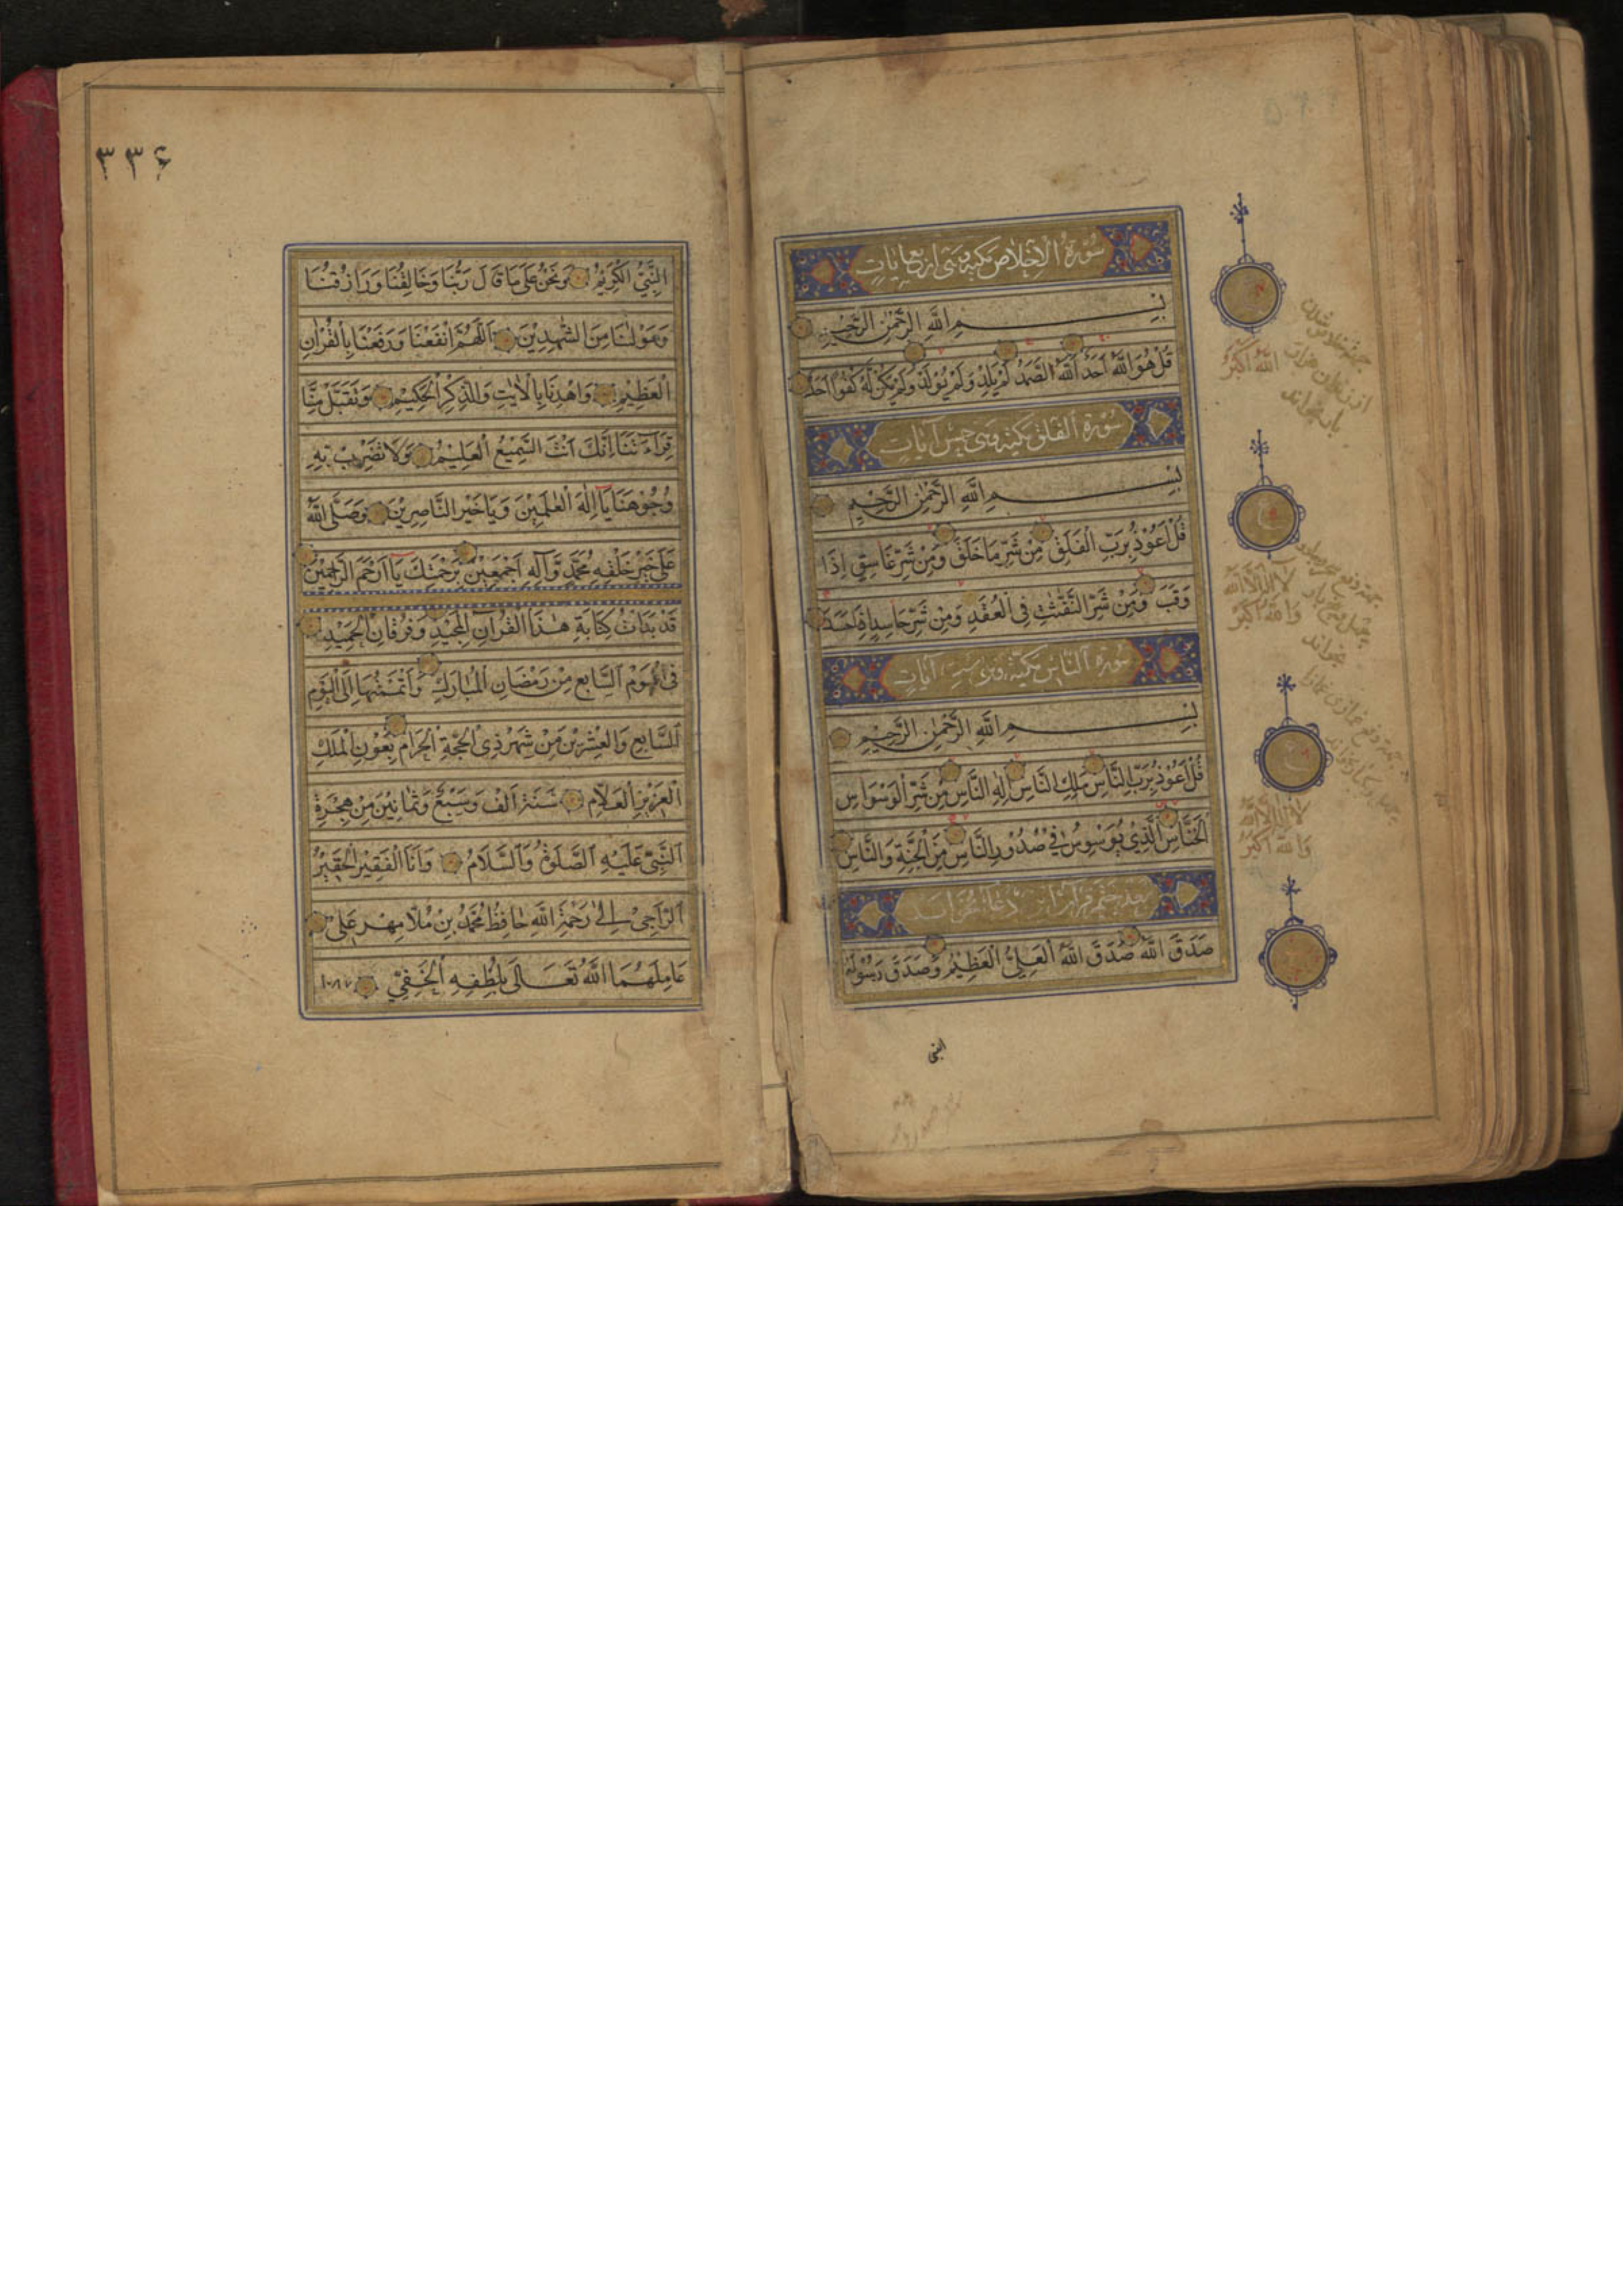 سُوْرَةُ الْاِخْلَاصِ مَكِّيَّة وَهِيَ اَرْبَعُ اٰيَاتٍ
بِسْمِ اللّٰهِ الرَّحْمٰنِ الرَّحِيْمِ
قُلْ هُوَ اللّٰهُ اَحَدٌ اَللّٰهُ الصَّمَدُ لَمْ يَلِدْ وَلَمْ يُوْلَدْ وَلَمْ يَكُنْ لَهُ كُفُوًا اَحَدٌ
سُوْرَةُ الْفَلَقِ مَكِّيَّة وَهِيَ خَمْسُ اٰيَاتٍ
بِسْمِ اللّٰهِ الرَّحْمٰنِ الرَّحِيْمِ
قُلْ اَعُوْذُ بِرَبِّ الْفَلَقِ مِنْ شَرِّ مَا خَلَقَ وَمِنْ شَرِّ غَاسِقٍ اِذَا
وَقَبَ وَمِنْ شَرِّ النَّفّٰثٰتِ فِى الْعُقَدِ وَمِنْ شَرِّ حَاسِدٍ اِذَا حَسَدَ
سُوْرَةُ النَّاسِ مَكِّيَّة وَهِيَ سِتُّ اٰيَاتٍ
بِسْمِ اللّٰهِ الرَّحْمٰنِ الرَّحِيْمِ
قُلْ اَعُوْذُ بِرَبِّ النَّاسِ مَلِكِ النَّاسِ اِلٰهِ النَّاسِ مِنْ شَرِّ الْوَسْوَاسِ
الْخَنَّاسِ الَّذِيْ يُوَسْوِسُ فِيْ صُدُوْرِ النَّاسِ مِنَ الْجِنَّةِ وَالنَّاسِ
بعد ختم قرآن این دعا بخواند
صَدَقَ اللّٰهُ صَدَقَ اللّٰهُ الْعَلِيُّ الْعَظِيْمُ وَصَدَقَ رَسُوْلُهُ
النبی
الله اكبر
لا اله الا الله
والله اكبر
لا اله الا الله
والله اكبر
٣٣۶
النَّبِيُّ الْكَرِيْمُ وَنَحْنُ عَلٰى مَا قَالَ رَبُّنَا وَخَالِقُنَا وَرَازِقُنَا
وَمَوْلٰنَا مِنَ الشّٰهِدِيْنَ اَللّٰهُمَّ انْفَعْنَا وَرَفِّعْنَا بِالْقُرْاٰنِ
الْعَظِيْمِ وَاهْدِنَا بِالْاٰيٰتِ وَالذِّكْرِ الْحَكِيْمِ وَتَقَبَّلْ مِنَّا
قِرَاءَتَنَا اِنَّكَ اَنْتَ السَّمِيْعُ الْعَلِيْمُ وَلَا تَضْرِبْ بِهِ
وُجُوْهَنَا يَا اِلٰهَ الْعٰلَمِيْنَ وَيَا خَيْرَ النَّاصِرِيْنَ وَصَلَّى اللّٰهُ
عَلٰى خَيْرِ خَلْقِهِ مُحَمَّدٍ وَّاٰلِهِ اَجْمَعِيْنَ بِرَحْمَتِكَ يَا اَرْحَمَ الرّٰحِمِيْنَ
قَدْ بَدَاْتُ كِتَابَةِ هٰذَا الْقُرْاٰنِ الْمَجِيْدِ وَفُرْقَانِ الْحَمِيْدِ
فِى الْيَوْمِ السَّابِعِ مِنْ رَمَضَانِ الْمُبَارَكِ وَاَتْمَمْتُهَا اِلَى الْيَوْمِ
السَّابِعِ وَالْعِشْرِيْنَ مِنْ شَهْرِ ذِى الْحِجَّةِ الْحَرَامِ بِعَوْنِ الْمَلِكِ
الْعَزِيْزِ الْعَلَّامِ سَنَةَ اَلْفٍ وَسَبْعٍ وَثَمَانِيْنَ مِنْ هِجْرَةِ
النَّبِيِّ عَلَيْهِ الصَّلٰوةُ وَالسَّلَامُ وَاَنَا الْفَقِيْرُ الْحَقِيْرُ
الرَّاجِيْ اِلٰى رَحْمَةِ اللّٰهِ حَافِظْ مُحَمَّدْ بِنْ مُلَّا مِهْر عَلِى
عَامِلَهُمَا اللّٰهُ تَعَالٰى بِلُطْفِهِ الْخَفِيِّ ١٠٨٧